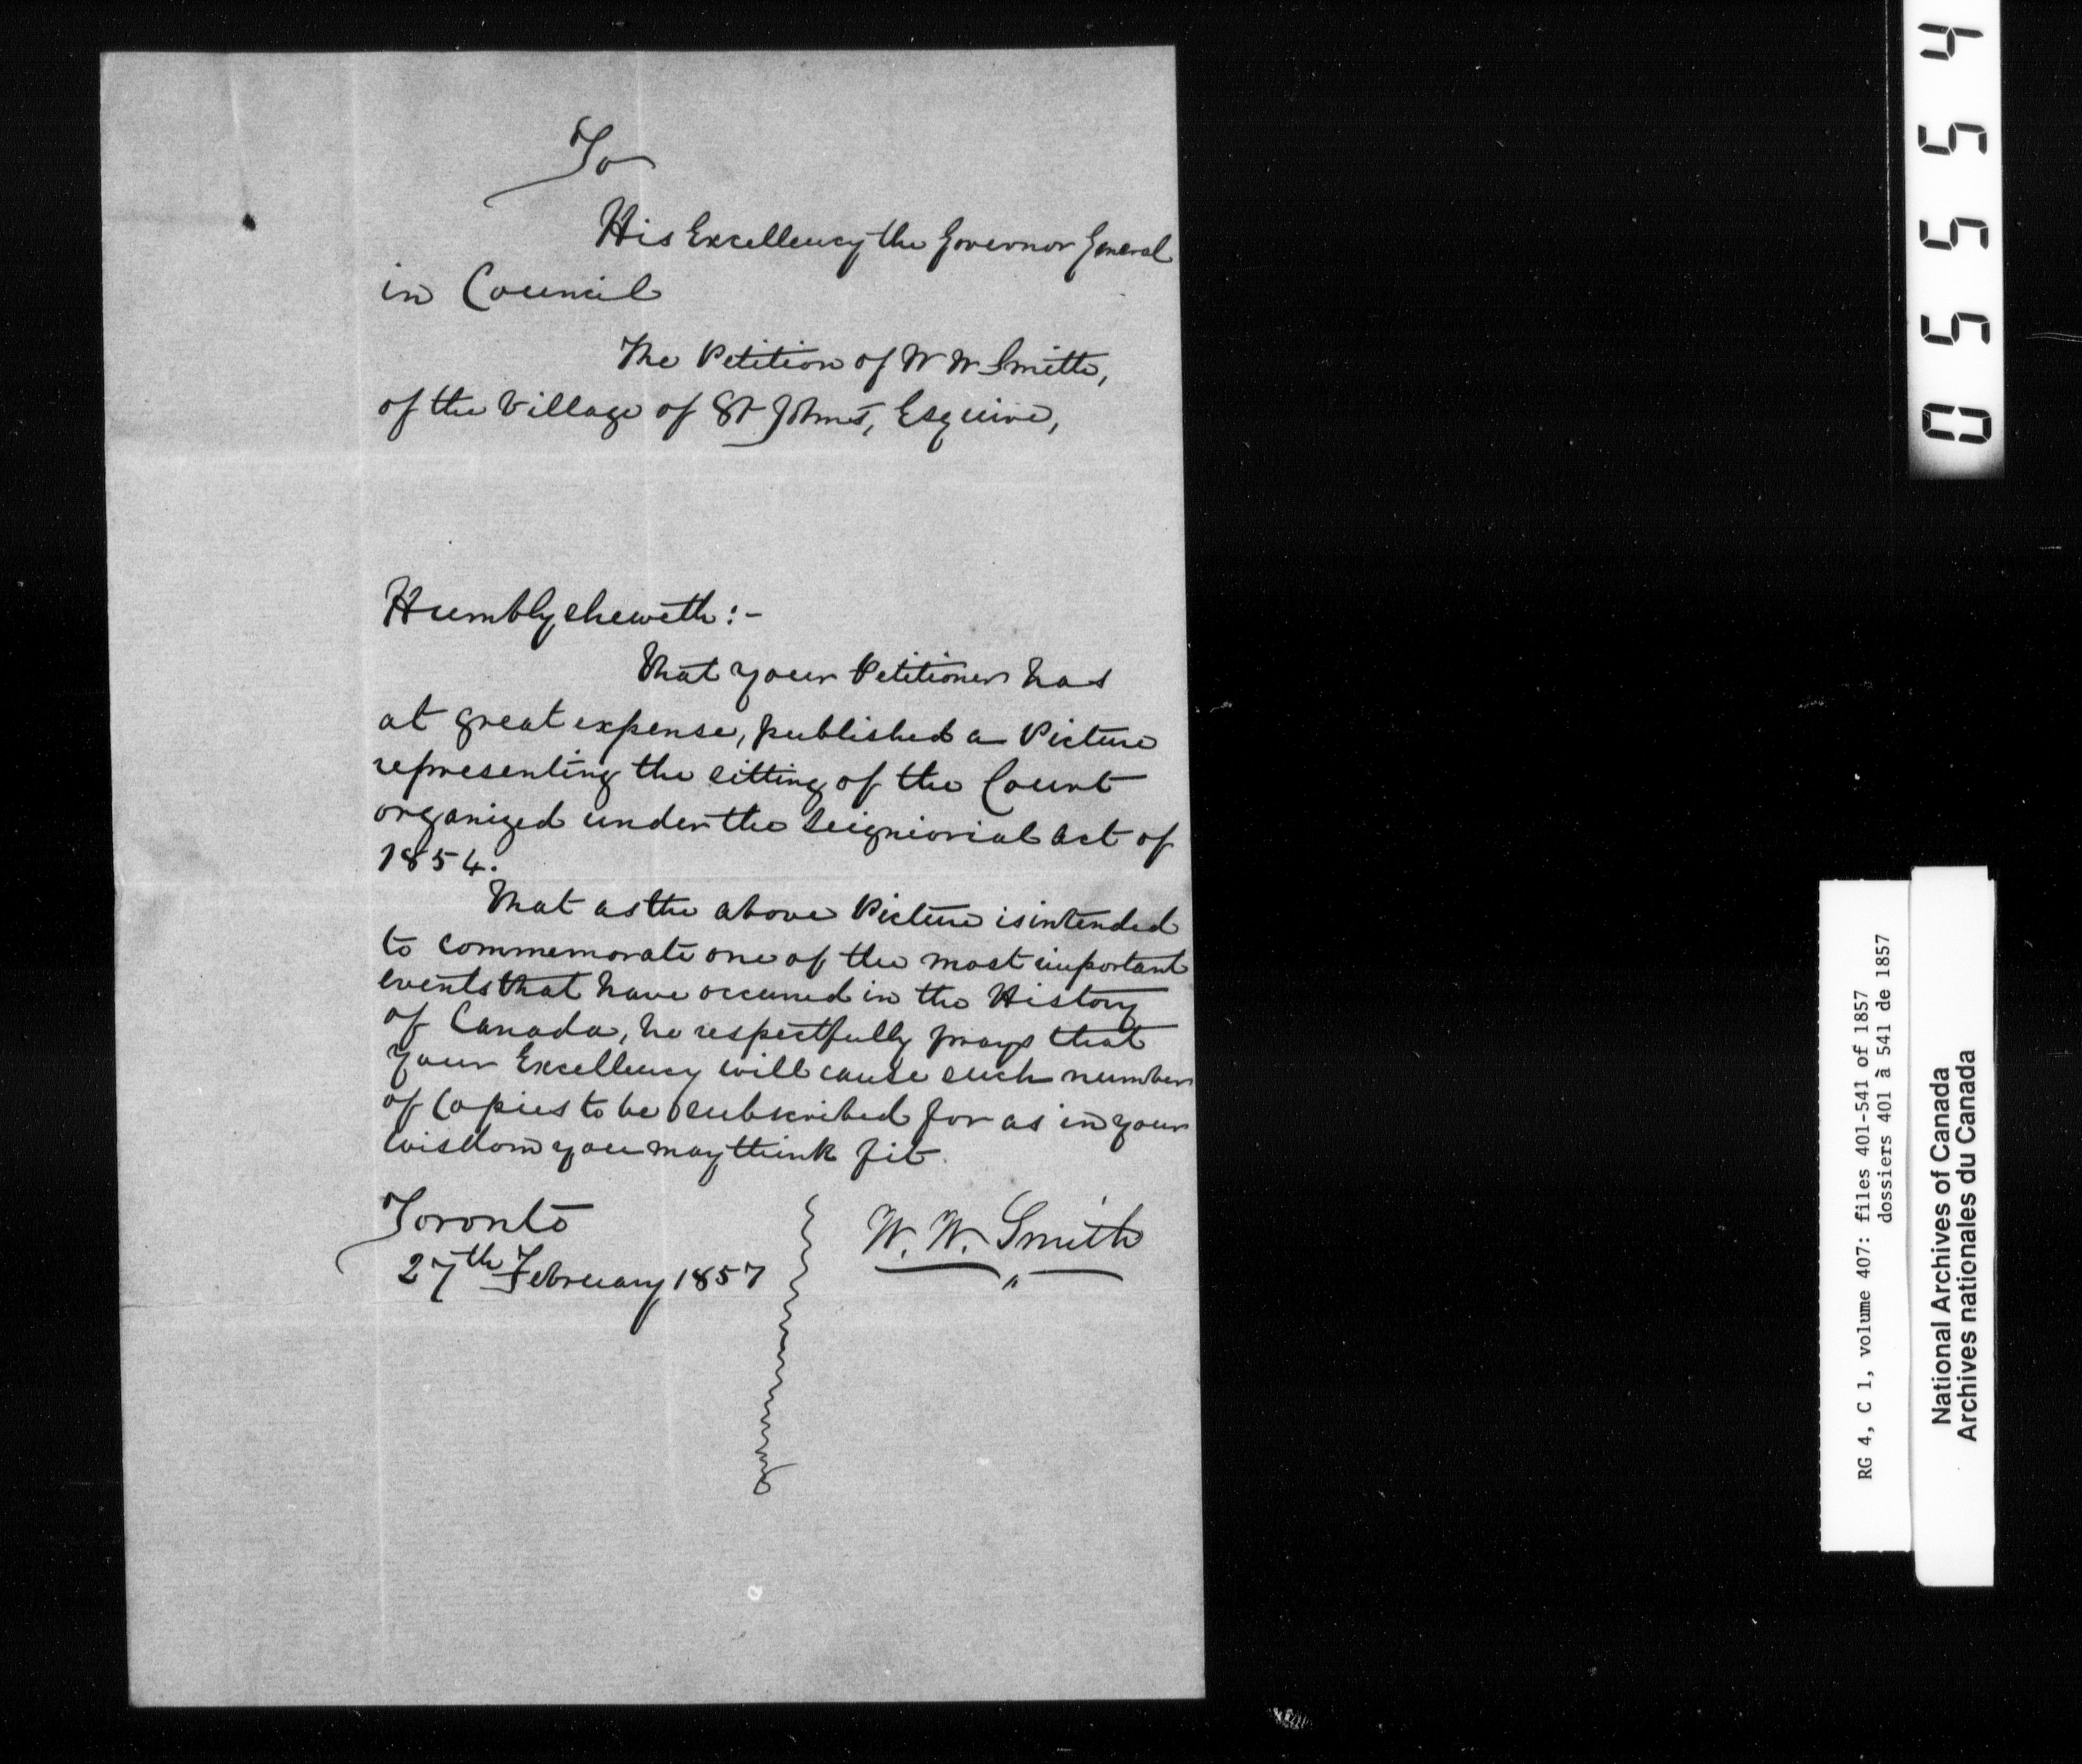 To
His Excellency the Governor General
in Council
The Petition of W W Smith,
of the Village of St Johns, Esquire,
Humbly sheweth:-
That your Petitioner has
at great expense, published a Picture
representing the sitting of the Court
organized under the Seigniorial Act of
1854.
That as the above Picture is intended
to commemorate one of the most important
events that have occurred in the History
of Canada, he respectfully prays that
your Excellency will cause such number
of Copies to be subscribed for as in your
wisdom you may think fit.
Toronto
27th February 1857
W. W. Smith
05554
RG 4, C 1, volume 407: files 401-541 of 1857
dossiers 401 à 541 de 1857
National Archives of Canada
Archives nationales du Canada